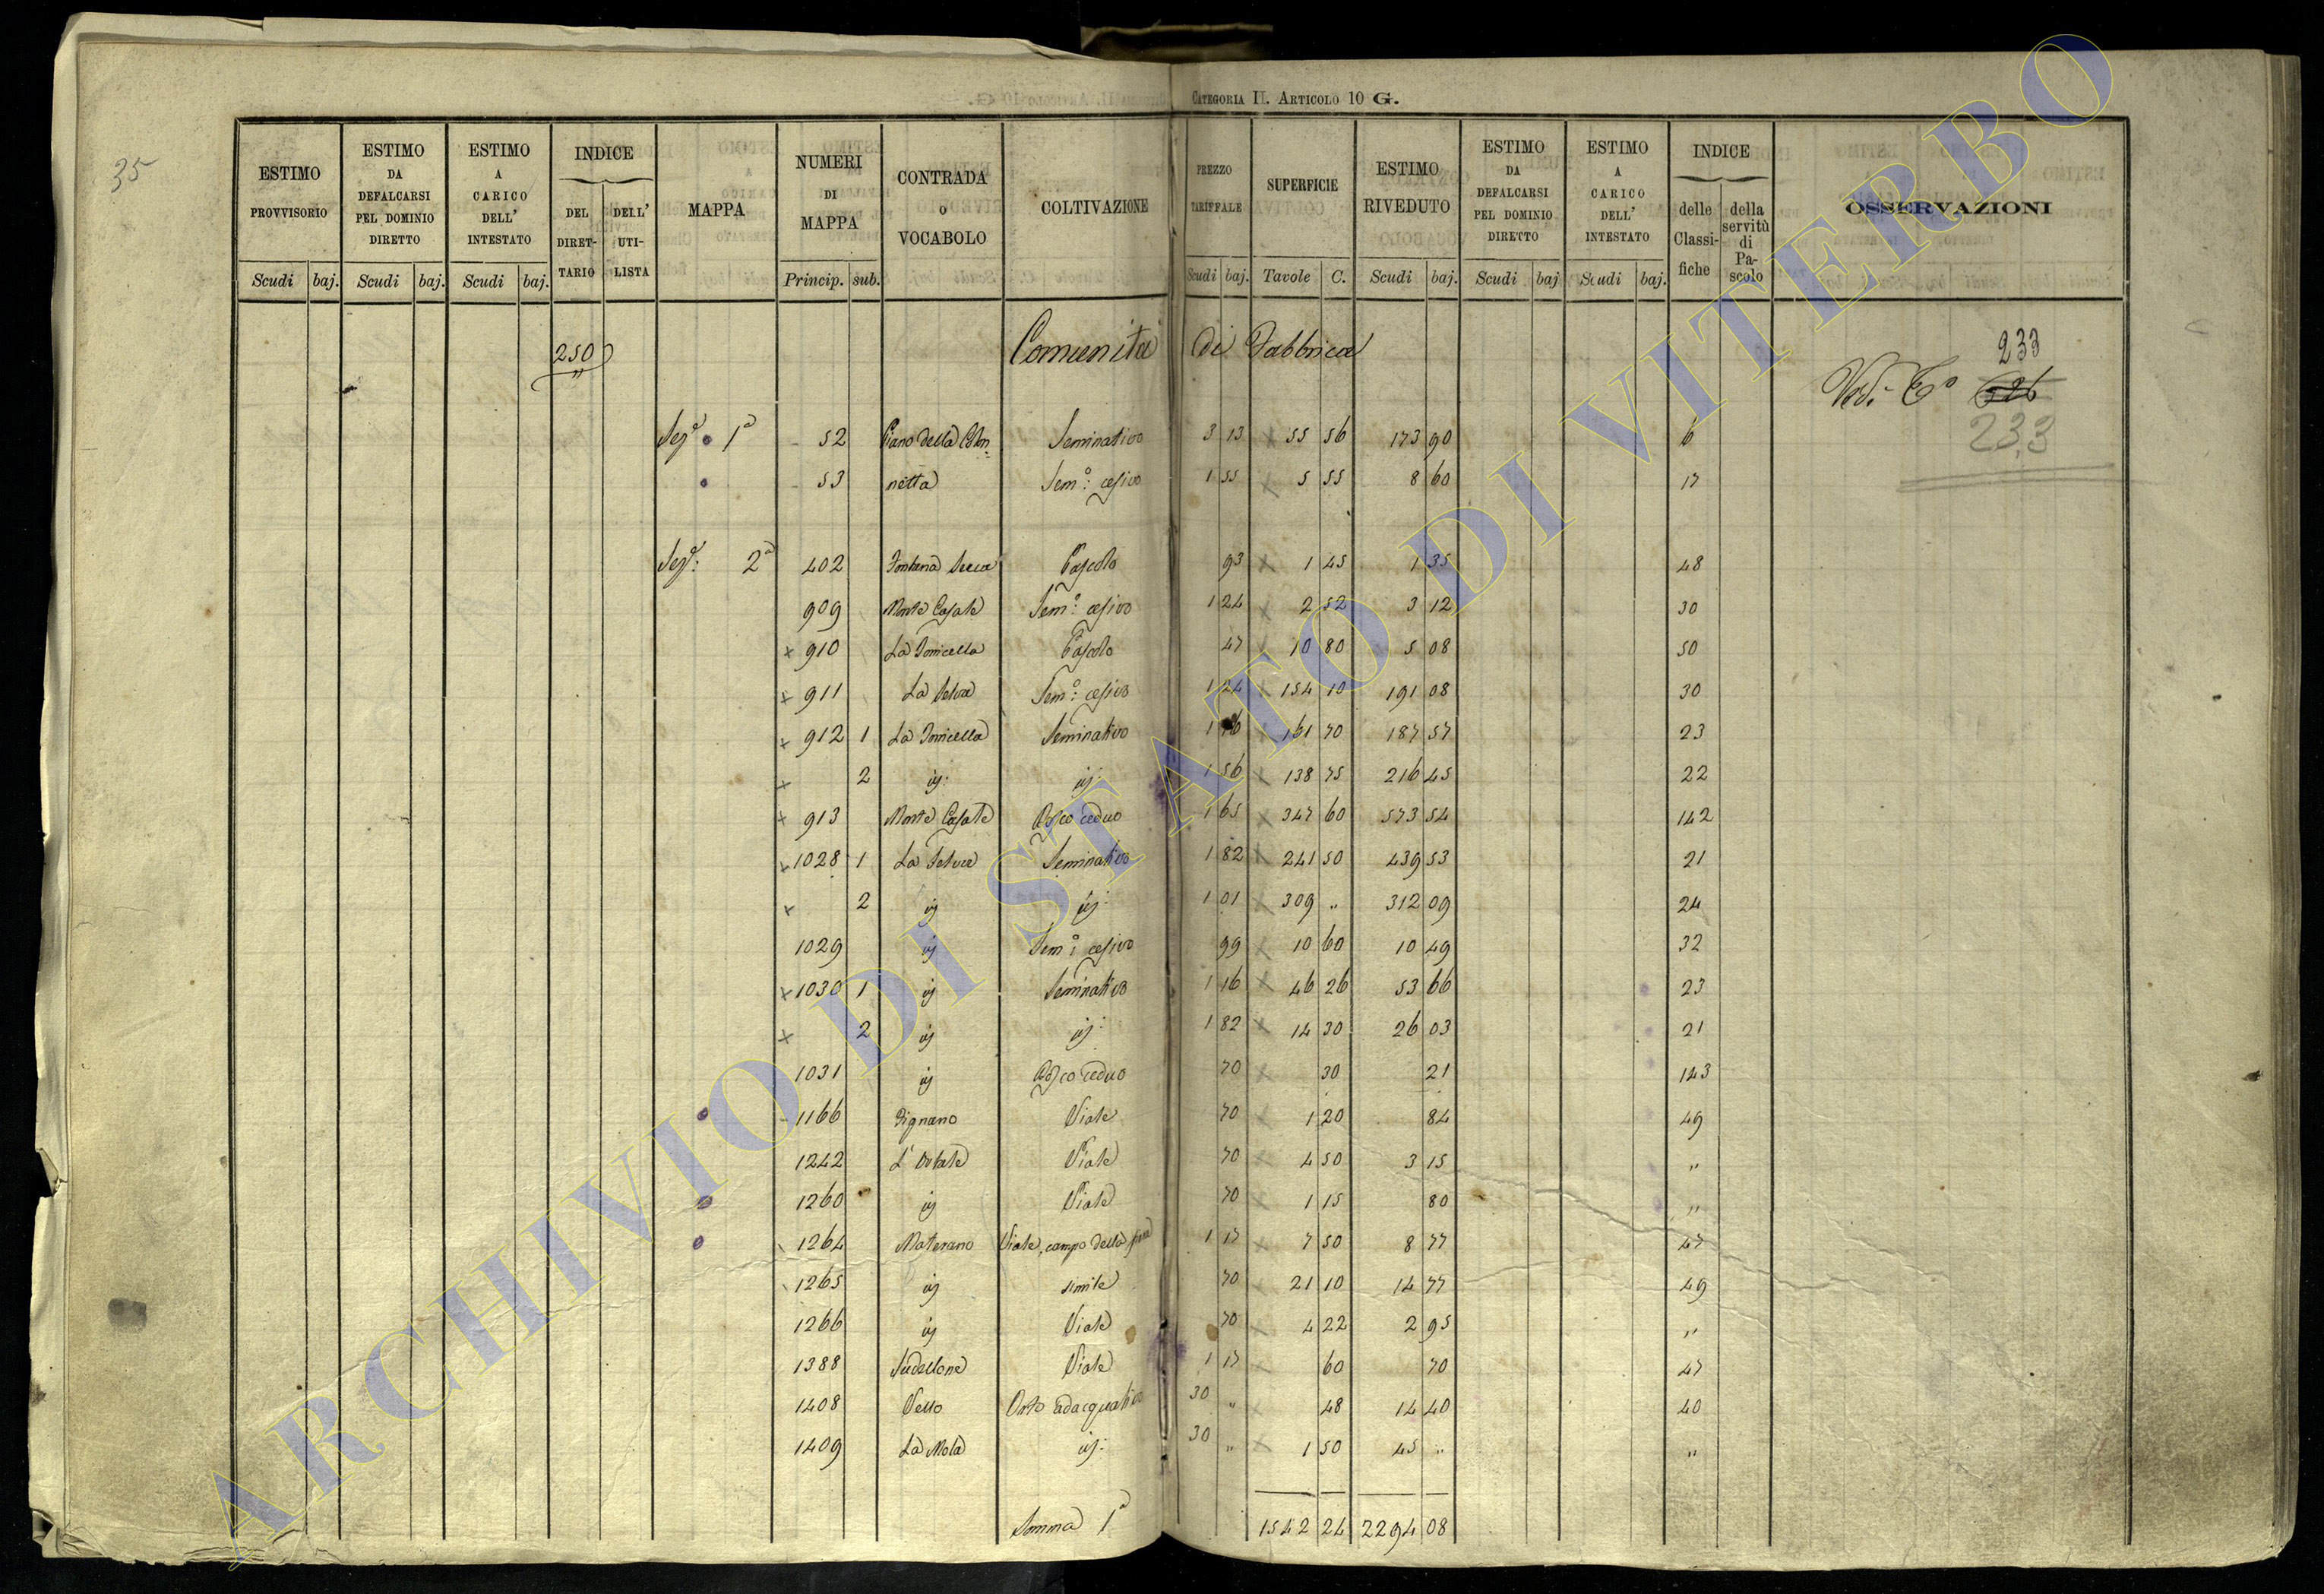 35
CATEGORIA II. ARTICOLO 10 G.
ESTIMO PROVVISORIO | ESTIMO DA DEFALCARSI PEL DOMINIO DIRETTO | ESTIMO A CARICO DELL' INTESTATO | INDICE DEL DIRET-TARIO | DELL' UTI-LISTA | MAPPA | NUMERI DI MAPPA | CONTRADA O VOCABOLO | COLTIVAZIONE | PREZZO TARIFFALE | SUPERFICIE | ESTIMO RIVEDUTO | ESTIMO DA DEFALCARSI PEL DOMINIO DIRETTO | ESTIMO A CARICO DELL' INTESTATO | INDICE delle Classi-fiche | della servitù di Pa-scolo | OSSERVAZIONI
Scudi baj. Scudi baj. Scudi baj. Princip. sub. Scudi baj. Tavole C. Scudi baj. Scudi baj Scudi baj.
250 Comunità di Fabbrica 233
Vedi 233
Sez.e 1a 52 Piano della Colon= Seminativo 3 13 55 56 173 90 6
53 netta Sem:o cesivo 1 55 5 55 8 60 17
Sez.e: 2a 402 Fontana Secca Pascolo 93 1 45 1 35 48
909 Monte Casale Sem:o cesivo 1 24 2 52 3 12 30
910 La Torricella Pascolo 47 10 80 5 08 50
911 La Selva Sem:o cesivo 1 24 154 10 191 08 30
912 1 La Torricella Seminativo 1 16 161 70 187 57 23
2 iỹ: iỹ: 1 56 138 75 216 45 22
913 Monte Casale Bosco ceduo 1 65 347 60 573 54 142
1028 1 La Selva Seminativo 1 82 241 50 439 53 21
2 iỹ iỹ: 1 01 309 " 312 09 24
1029 iỹ Sem:o cesivo 99 10 60 10 49 32
1030 1 iỹ Seminativo 1 16 46 26 53 66 23
2 iỹ iỹ: 1 82 14 30 26 03 21
1031 iỹ Bosco ceduo 70 30 21 143
1166 Vignano Viale 70 1 20 84 49
1242 Viale 70 4 50 3 15 "
1260 iỹ Viale 70 1 15 80 "
1264 Materano Viale, campo della 1 17 7 50 8 77 47
1265 iỹ simile 70 21 10 14 77 49
1266 iỹ Viale 70 4 22 2 95 "
1388 Viale 1 17 60 70 47
1408 Orto adacquativo 30 " 48 14 40 40
1409 La Mola iỹ: 30 " 1 50 45 " "
Somma 1a 1542 24 2294 08
ARCHIVIO DI STATO DI VITERBO